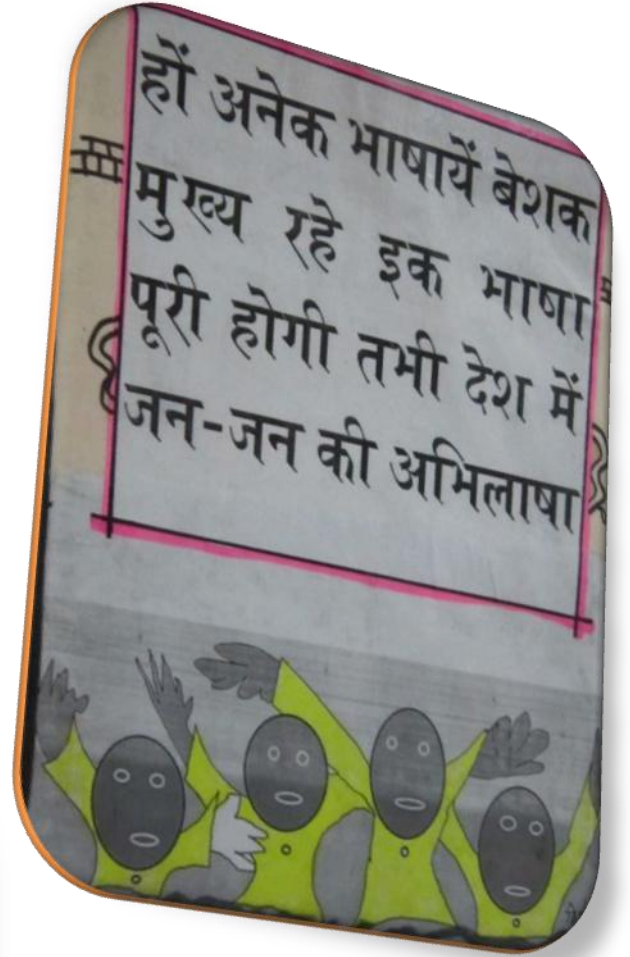 हों अनेक भाषायें बेशक
मुख्य रहे इक भाषा
पूरी होगी तभी देश में
जन-जन की अभिलाषा